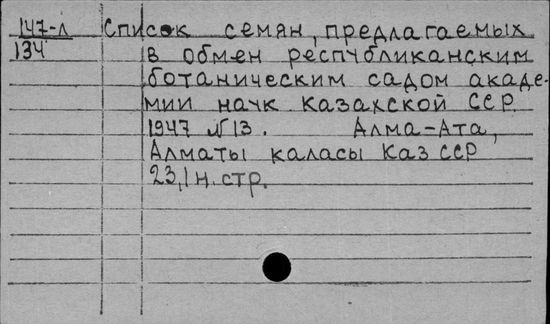 147-л Список семян, предлагаемых
134 в обмен республиканским
ботаническим садом акаде-
мии наук Казахской ССР.
1947 №13. Алма-Ата,
Алматы каласы Каз ССР
23,1 н. стр.